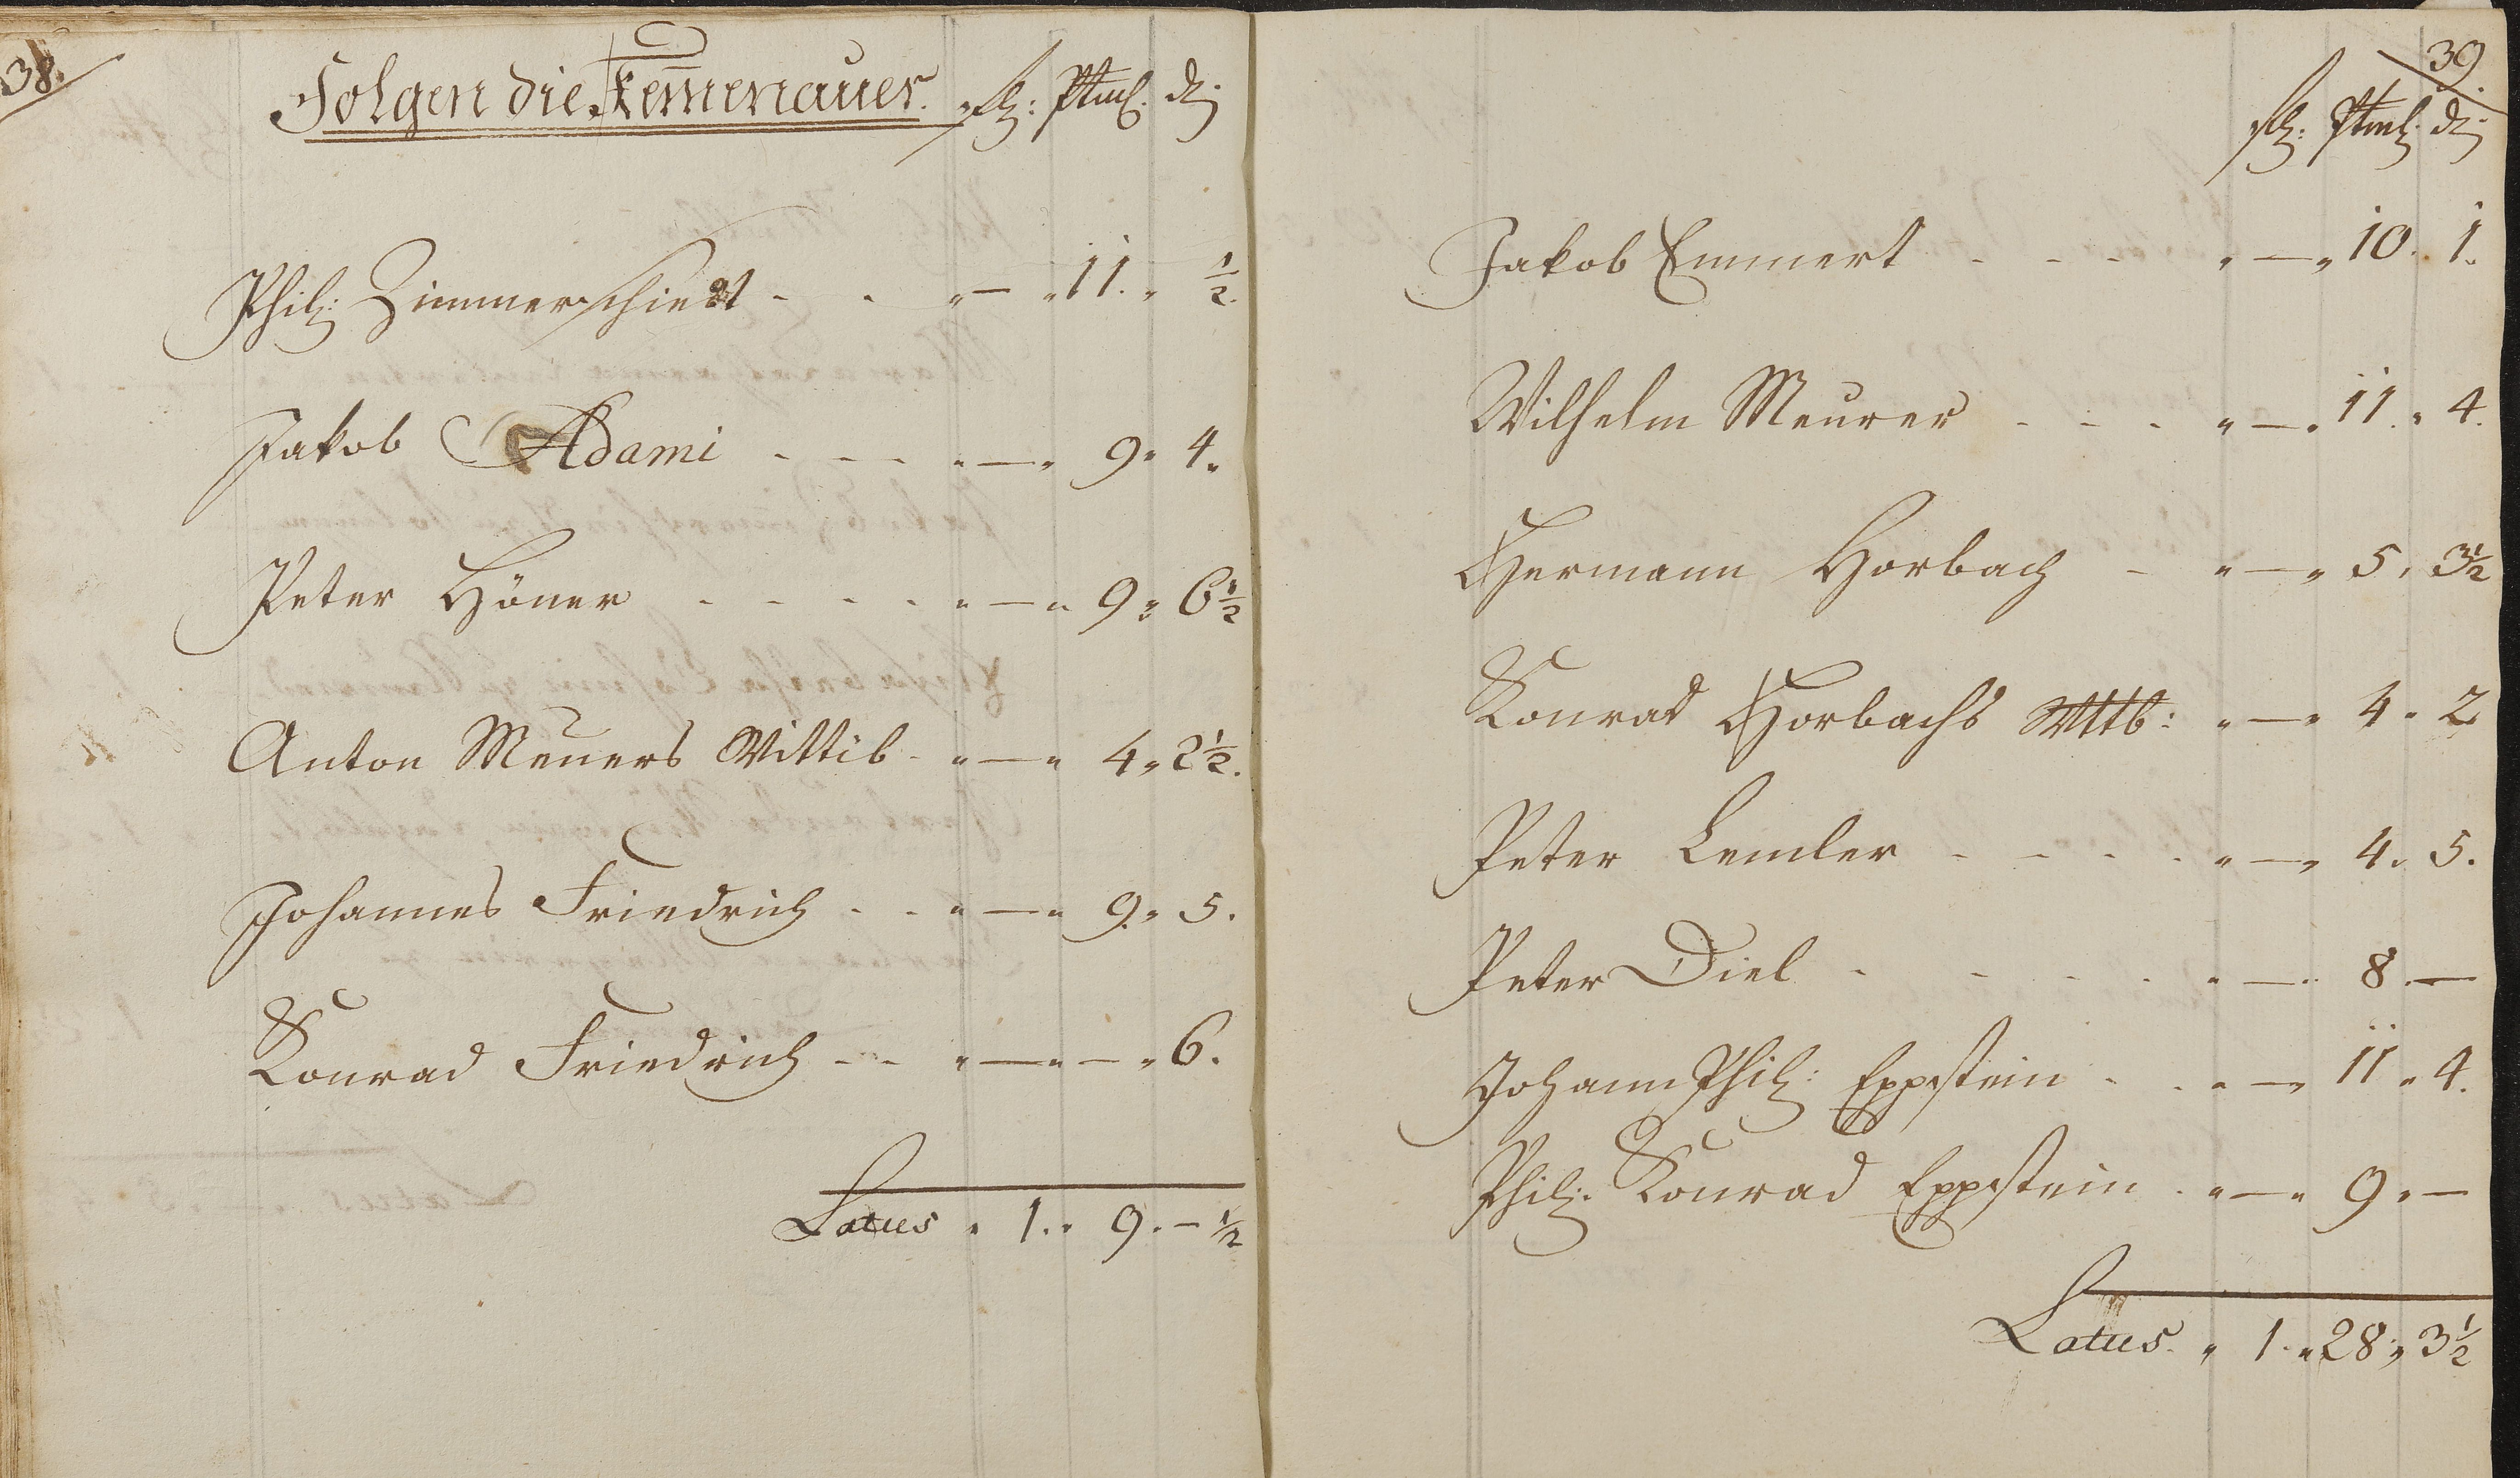 38.
Folgen die Kem̅enauer.
Phil: Zimmerschiedt - - " — " 11. " ½.
Jakob Adami - - - " — " 9 " 4 "
Peter Höner - - - - " — " 9 " 6½
Anton Meuers Wittib - " — " 4 " 2½.
Johannes Friedrich - - " — " 9. " 5.
Konrad Friedrich - - " — " — " 6.
Latus " 1. " 9. — ½
39.
Jakob Emmert - - - " — " 10. 1.
Wilhelm Meurer - - - " — " 11. " 4.
Hermann Horbach - " — " 5 " 3½
Konrad Horbachs Wttb: " — " 4 " 2
Peter Lemler - - - - " — " 4 " 5.
Peter Diel - - - - " — " 8. —
Johann Phil: Eppstein - - " — " 11 " 4.
Phil: Konrad Eppstein - " — " 9 " —
Latus. " 1. " 28 " 3½